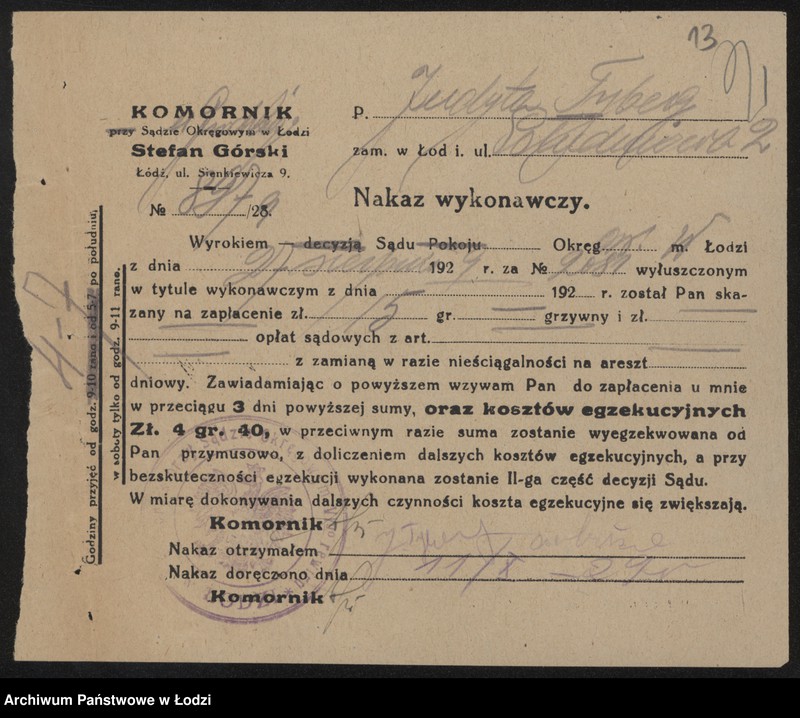 13
KOMORNIK
przy Sądzie Okręgowym w Łodzi
Stefan Górski
Łódź, ul. Sienkiewicza 9.
№ /28.
P. Judyta Tyberg
zam. w Łodzi. ul. 2
Nakaz wykonawczy.
Wyrokiem — decyzją Sądu Pokoju Okręg. m. Łodzi
z dnia 27 1929 r. za № wyłuszczonym
w tytule wykonawczym z dnia 192 r. został Pan ska-
zany na zapłacenie zł. 15 gr. grzywny i zł.
opłat sądowych z art.
z zamianą w razie nieściągalności na areszt
dniowy. Zawiadamiając o powyższem wzywam Pan do zapłacenia u mnie
w przeciągu 3 dni powyższej sumy, oraz kosztów egzekucyjnych
Zł. 4 gr. 40, w przeciwnym razie suma zostanie wyegzekwowana od
Pan przymusowo, z doliczeniem dalszych kosztów egzekucyjnych, a przy
bezskuteczności egzekucji wykonana zostanie II-ga część decyzji Sądu.
W miarę dokonywania dalszych czynności koszta egzekucyjne się zwiększają.
Komornik
Nakaz otrzymałem
Nakaz doręczono dnia 11/X - 29
Komornik
Godziny przyjęć od godz. 9-10 rano i od 5-7 po południu,
w soboty tylko od godz. 9-11 rano.
4-7
Archiwum Państwowe w Łodzi